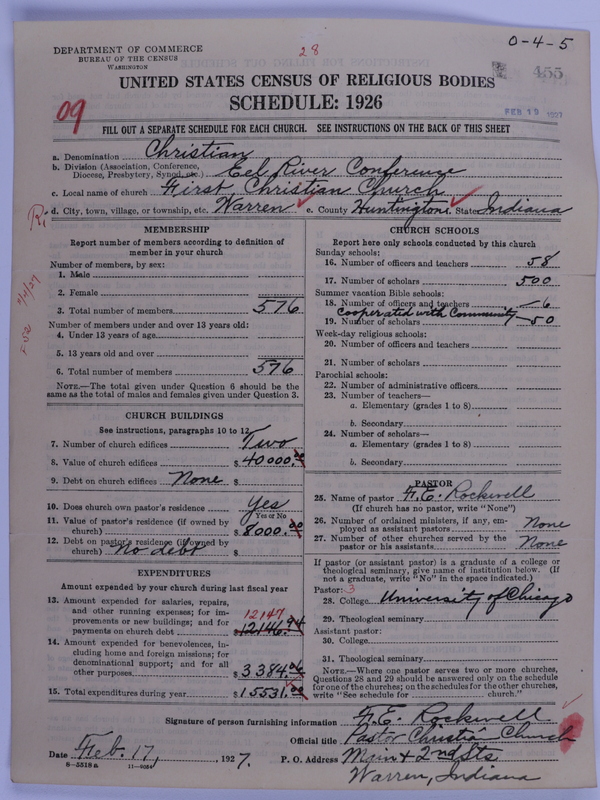 DEPARTMENT OF COMMERCE
BUREAU OF THE CENSUS
WASHINGTON
28
0-4-5
455
UNITED STATES CENSUS OF RELIGIOUS BODIES
SCHEDULE: 1926
FEB 19 1927
09
FILL OUT A SEPARATE SCHEDULE FOR EACH CHURCH. SEE INSTRUCTIONS ON THE BACK OF THIS SHEET
a. Denomination Christian
b. Division (Association, Conference, Diocese, Presbytery, Synod, etc.) Eel River Conference
c. Local name of church First Christian Church
d. City, town, village, or township, etc. Warren e. County Huntington State Indiana
MEMBERSHIP
Report number of members according to definition of
member in your church
Number of members, by sex:
1. Male
2. Female
3. Total number of members 576
Number of members under and over 13 years old:
4. Under 13 years of age
5. 13 years old and over
6. Total number of members 576
NOTE.—The total given under Question 6 should be the
same as the total of males and females given under Question 3.
CHURCH BUILDINGS
See instructions, paragraphs 10 to 12
7. Number of church edifices Two
8. Value of church edifices $ 40000.00
9. Debt on church edifices None $
10. Does church own pastor's residence Yes
Yes or No
11. Value of pastor's residence (if owned by
church) $ 8000.00
12. Debt on pastor's residence (if owned by
church) No debt $
EXPENDITURES
Amount expended by your church during last fiscal year
13. Amount expended for salaries, repairs,
and other running expenses; for im-
provements or new buildings; and for
payments on church debt $ 12146.94
12147
14. Amount expended for benevolences, in-
cluding home and foreign missions; for
denominational support; and for all
other purposes $ 3384.06
15. Total expenditures during year $ 15531.00
CHURCH SCHOOLS
Report here only schools conducted by this church
Sunday schools:
16. Number of officers and teachers 58
17. Number of scholars 500
Summer vacation Bible schools:
18. Number of officers and teachers 6
Cooperated with Community
19. Number of scholars 50
Week-day religious schools:
20. Number of officers and teachers
21. Number of scholars
Parochial schools:
22. Number of administrative officers
23. Number of teachers—
a. Elementary (grades 1 to 8)
b. Secondary
24. Number of scholars—
a. Elementary (grades 1 to 8)
b. Secondary
PASTOR
25. Name of pastor F. E. Rockwell
(If church has no pastor, write "None")
26. Number of ordained ministers, if any, em-
ployed as assistant pastors None
27. Number of other churches served by the
pastor or his assistants None
If pastor (or assistant pastor) is a graduate of a college or
theological seminary, give name of institution below. (If
not a graduate, write "No" in the space indicated.)
Pastor: 3
28. College University of Chicago
29. Theological seminary
Assistant pastor:
30. College
31. Theological seminary
NOTE.—Where one pastor serves two or more churches,
Questions 28 and 29 should be answered only on the schedule
for one of the churches; on the schedules for the other churches,
write "See schedule for church."
Signature of person furnishing information F. E. Rockwell
Official title Pastor Christian Church
Date Feb. 17, 1927. P. O. Address Main & 2nd Sts
8—5518a 11—9054
Warren, Indiana